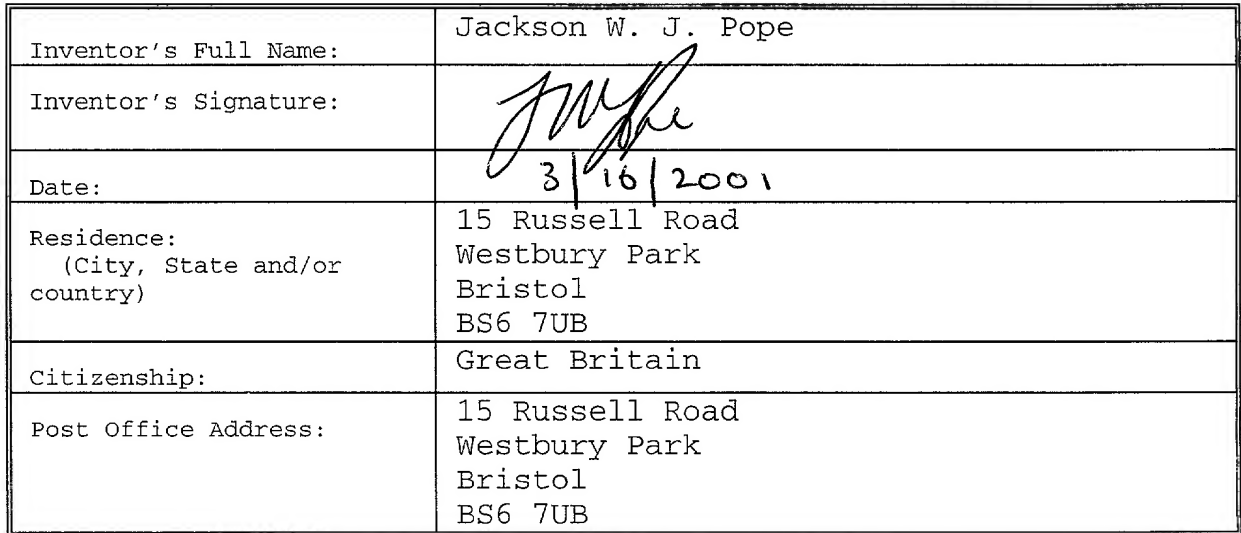 Inventor's Full Name:
Jackson W. J. Pope
Inventor's Signature:
Date:
3/16/2001
Residence:
(City, State and/or
country)
15 Russell Road
Westbury Park
Bristol
BS6 7UB
Citizenship:
Great Britain
Post Office Address:
15 Russell Road
Westbury Park
Bristol
BS6 7UB